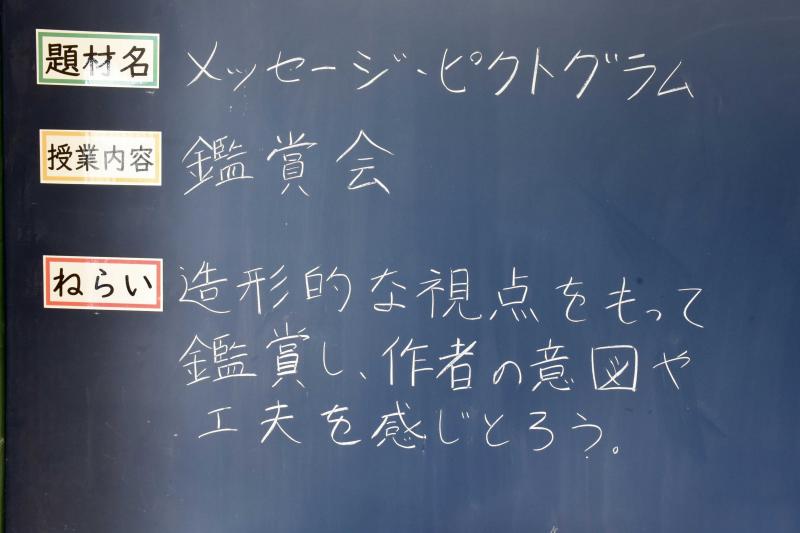 題材名 メッセージ・ピクトグラム
授業内容 鑑賞会
ねらい 造形的な視点をもって
鑑賞し、作者の意図や
工夫を感じとろう。